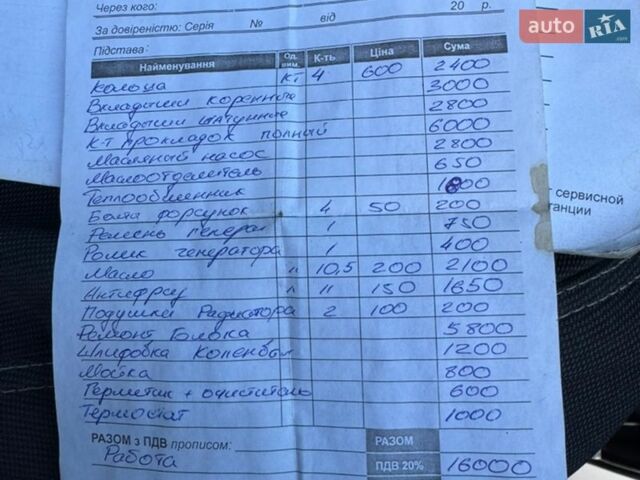 Через кого: 20 р.
За довіреністю: Серія № від
Підстава:
Найменування Од. вим. К-ть Ціна Сума
Кольца КТ 4 600 2400
Вкладыши коренные 3000
Вкладыши шатунние 2800
К-т прокладок полный 6000
Масляный насос 2800
Маслоотделитель 650
Теплообменник 1800
Болт форсунок 4 50 200
Ремень генерат 1 750
Ролик генератора 1 400
Масло " 10,5 200 2100
Антифриз л 11 150 1650
Подушки Радиатора 2 100 200
Ремонт Блока 5800
Шлифовка Коленвал 1200
Мойка 800
Герметик + очиститель 600
Термостат 1000
РАЗОМ з ПДВ прописом: РАЗОМ
Работа ПДВ 20% 16000
т сервисной
танции
auto RIA.com